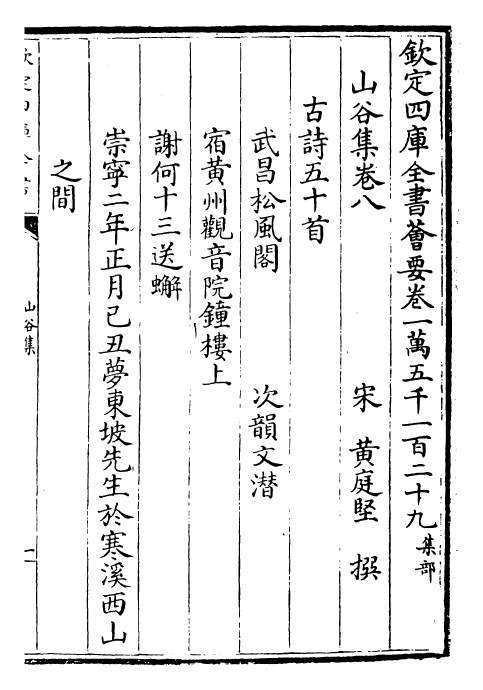 欽定四庫全書薈要卷一萬五千一百二十九 集部
山谷集卷八 宋 黃庭堅 撰
古詩五十首
武昌松風閣 次韻文潛
宿黃州觀音院鐘樓上
謝何十三送蠏
崇寧二年正月己丑夢東坡先生於寒溪西山
之間
欽定四庫全書
山谷集
一